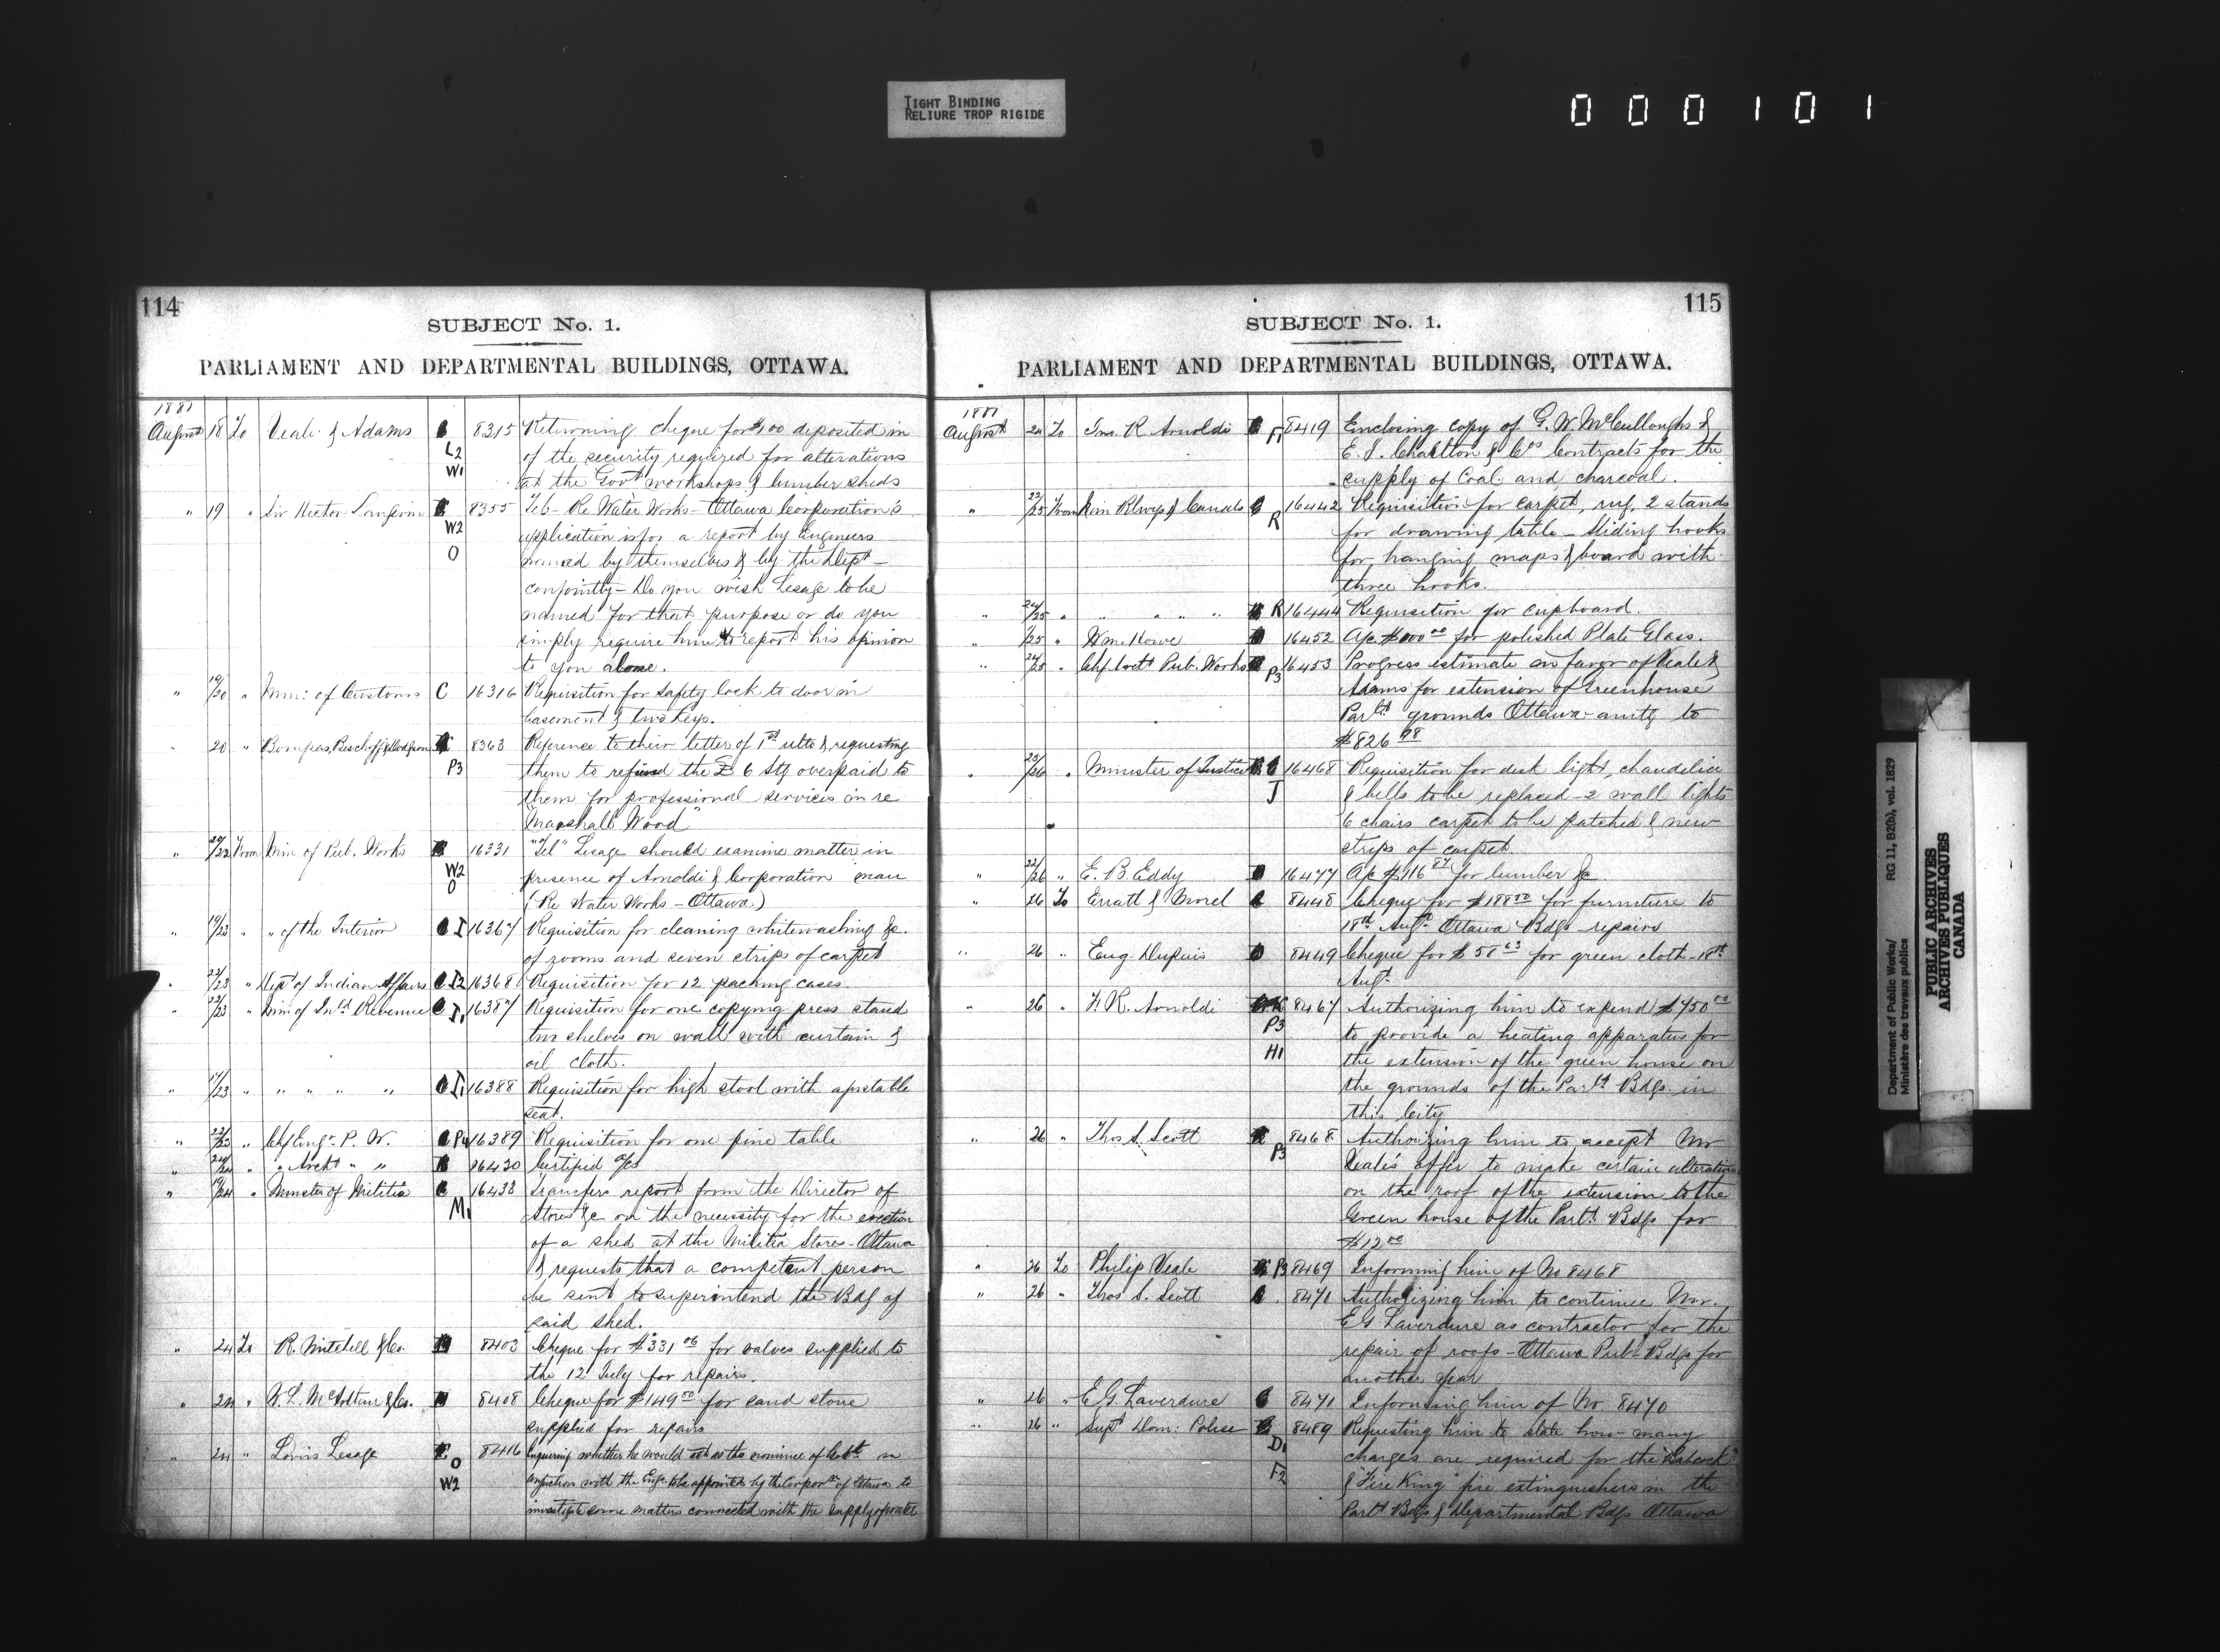 TIGHT BINDING
RELIURE TROP RIGIDE
000101
114
SUBJECT No. 1.
PARLIAMENT AND DEPARTMENTAL BUILDINGS, OTTAWA.
1881
August 18 To Veale & Adams 8315 Returning cheque for $100 deposited in
L2 of the security required for alterations
W1 at the Govt workshops & lumber sheds
" 19 " Sir Hector Langevin 8355 Re Water Works - Ottawa Corporation's
W2 application is for a report by Engineers
O named by themselves & by the Dept -
conjointly - Do you wish Lesage to be
named for that purpose or do you
simply require him to report his opinion
to you alone.
" 19/20 " Min: of Customs C 16316 Requisition for safety lock to door in
basement & two keys.
" 20 " Bompas, Bischoff & Dodgson 8363 Reference to their letter of 1st ulto & requesting
P3 them to refund the £6 Stg overpaid to
them for professional services in re
"Marshall Wood"
" 20/22 From Min of Pub. Works 16331 "Tel" Lesage should examine matter in
W2 presence of Arnoldi & Corporation man
O (Re Water Works - Ottawa)
" 19/23 " " of the Interior I 16367 Requisition for cleaning whitewashing &c.
of rooms and seven strips of carpet
" 22/23 " Dept of Indian Affairs I2 16368 Requisition for 12 packing cases.
" 22/23 " Min of Inld Revenue I1 16387 Requisition for one copying press stand
two shelves on wall with curtain &
oil cloth.
" /23 " " " " " I1 16388 Requisition for high stool with
seat.
" 22/23 " Chf Engr P. W. P4 16389 Requisition for one pine table
" " " Archt " " 16430 Certified a/cs
" 19/24 " Minister of Militia 16438 Transfers report from the Director of
M1 Stores &c on the necessity for the erection
of a shed at the Militia Stores - Ottawa
& requests that a competent person
be sent to superintend the Bdg of
said shed.
" 24 To R. Mitchell & Co. 8403 Cheque for $331 06 for valves supplied to
the 12 July for repairs.
" 24 " 8408 Cheque for $149 00 for sand stone
supplied for repairs
" 24 " Louis Lesage O 8416 Enquiring whether he would act as the nominee of in
W2 conjunction with the Engr to be appointed by the Corporn of Ottawa to
investigate some matters connected with the supply of water
115
SUBJECT No. 1.
PARLIAMENT AND DEPARTMENTAL BUILDINGS, OTTAWA.
1881
August 24 To Jno. R. Arnoldi F1 8419 Enclosing copy of G. W. McCullough's &
E. S. Charlton & Co's Contracts for the
supply of Coal and charcoal.
" 22/25 From Min Rlwys & Canals R 16442 Requisition for carpet, rug, 2 stands
for drawing table - Sliding hooks
for hanging maps & board with
three hooks.
" 24/25 " " " " R 16444 Requisition for cupboard.
" /25 " Wm Howe 16452 A/c $100 00 for polished Plate Glass.
" 24/25 " Chf Archt Pub. Works P3 16453 Progress estimate in favor of Veale &
Adams for extension of Greenhouse
Parlt grounds Ottawa - amtg to
$826 98
" 25/26 " Minister of Justice 16468 Requisition for desk light, chandelier
J & bells to be replaced - 2 wall lights
6 chairs carpet to be patched & new
strips of carpet.
" 22/26 " E. B. Eddy 16477 A/c $116 87 for lumber &c
" 26 To Erratt & Morel 8448 Cheque for $188 00 for furniture to
18th Augt Ottawa Bdgs repairs
" 26 " Eug. Dupuis 8449 Cheque for $58 63 for green cloth - 18th
Augt
" 26 " J. R. Arnoldi 8467 Authorizing him to expend $750 00
P3 to provide a heating apparatus for
H1 the extension of the green house on
the grounds of the Parlt Bdgs in
this City
" 26 " Thos S. Scott P3 8468 Authorizing him to accept Mr
Veale's offer to make certain alterations
on the roof of the extension to the
Green house of the Parlt Bdgs for
$12 00
" 26 To Philip Veale P3 8469 Informing him of No 8468
" 26 " Thos S. Scott 8471 Authorizing him to continue Mr.
E G Laverdure as contractor for the
repair of roofs - Ottawa Pub. Bdgs for
another year
" 26 " E G. Laverdure 8471 Informing him of No. 8470
" 26 " Supt Dom: Police 8489 Requesting him to state how many
D1 charges are required for the "Babcock"
F2 & "Fire King" fire extinguishers in the
Parlt Bdgs & Departmental Bdgs Ottawa
Department of Public Works/ RG 11, B2(b), vol. 1829
Ministère des travaux publics
PUBLIC ARCHIVES
ARCHIVES PUBLIQUES
CANADA